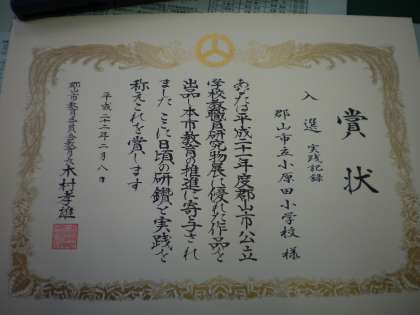 賞状
入選 実践記録
郡山市立小原田小学校 様
あなたは平成二十一年度郡山市公立
学校教職員研究物展に優れた作品を
出品し本市教育の推進に寄与され
ました ここに日頃の研鑽と実践を
称えこれを賞します
平成二十二年二月八日
郡山市教育委員会教育長 木村孝雄